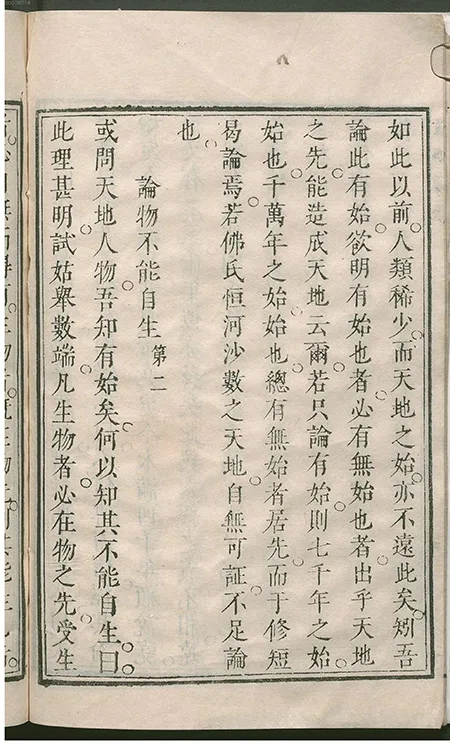 如此以前人類稀少而天地之始亦不遠此矣矧吾
論此有始欲明有始也者必有無始也者出乎天地
之先能造成天地云爾若只論有始則七千年之始
始也千萬年之始始也總有無始者居先而于修短
曷論焉若佛氏恒河沙數之天地自無可証不足論
也
論物不能自生 第二
或問天地人物吾知有始矣何以知其不能自生曰
此理甚明試姑舉數端凡生物者必在物之先受生